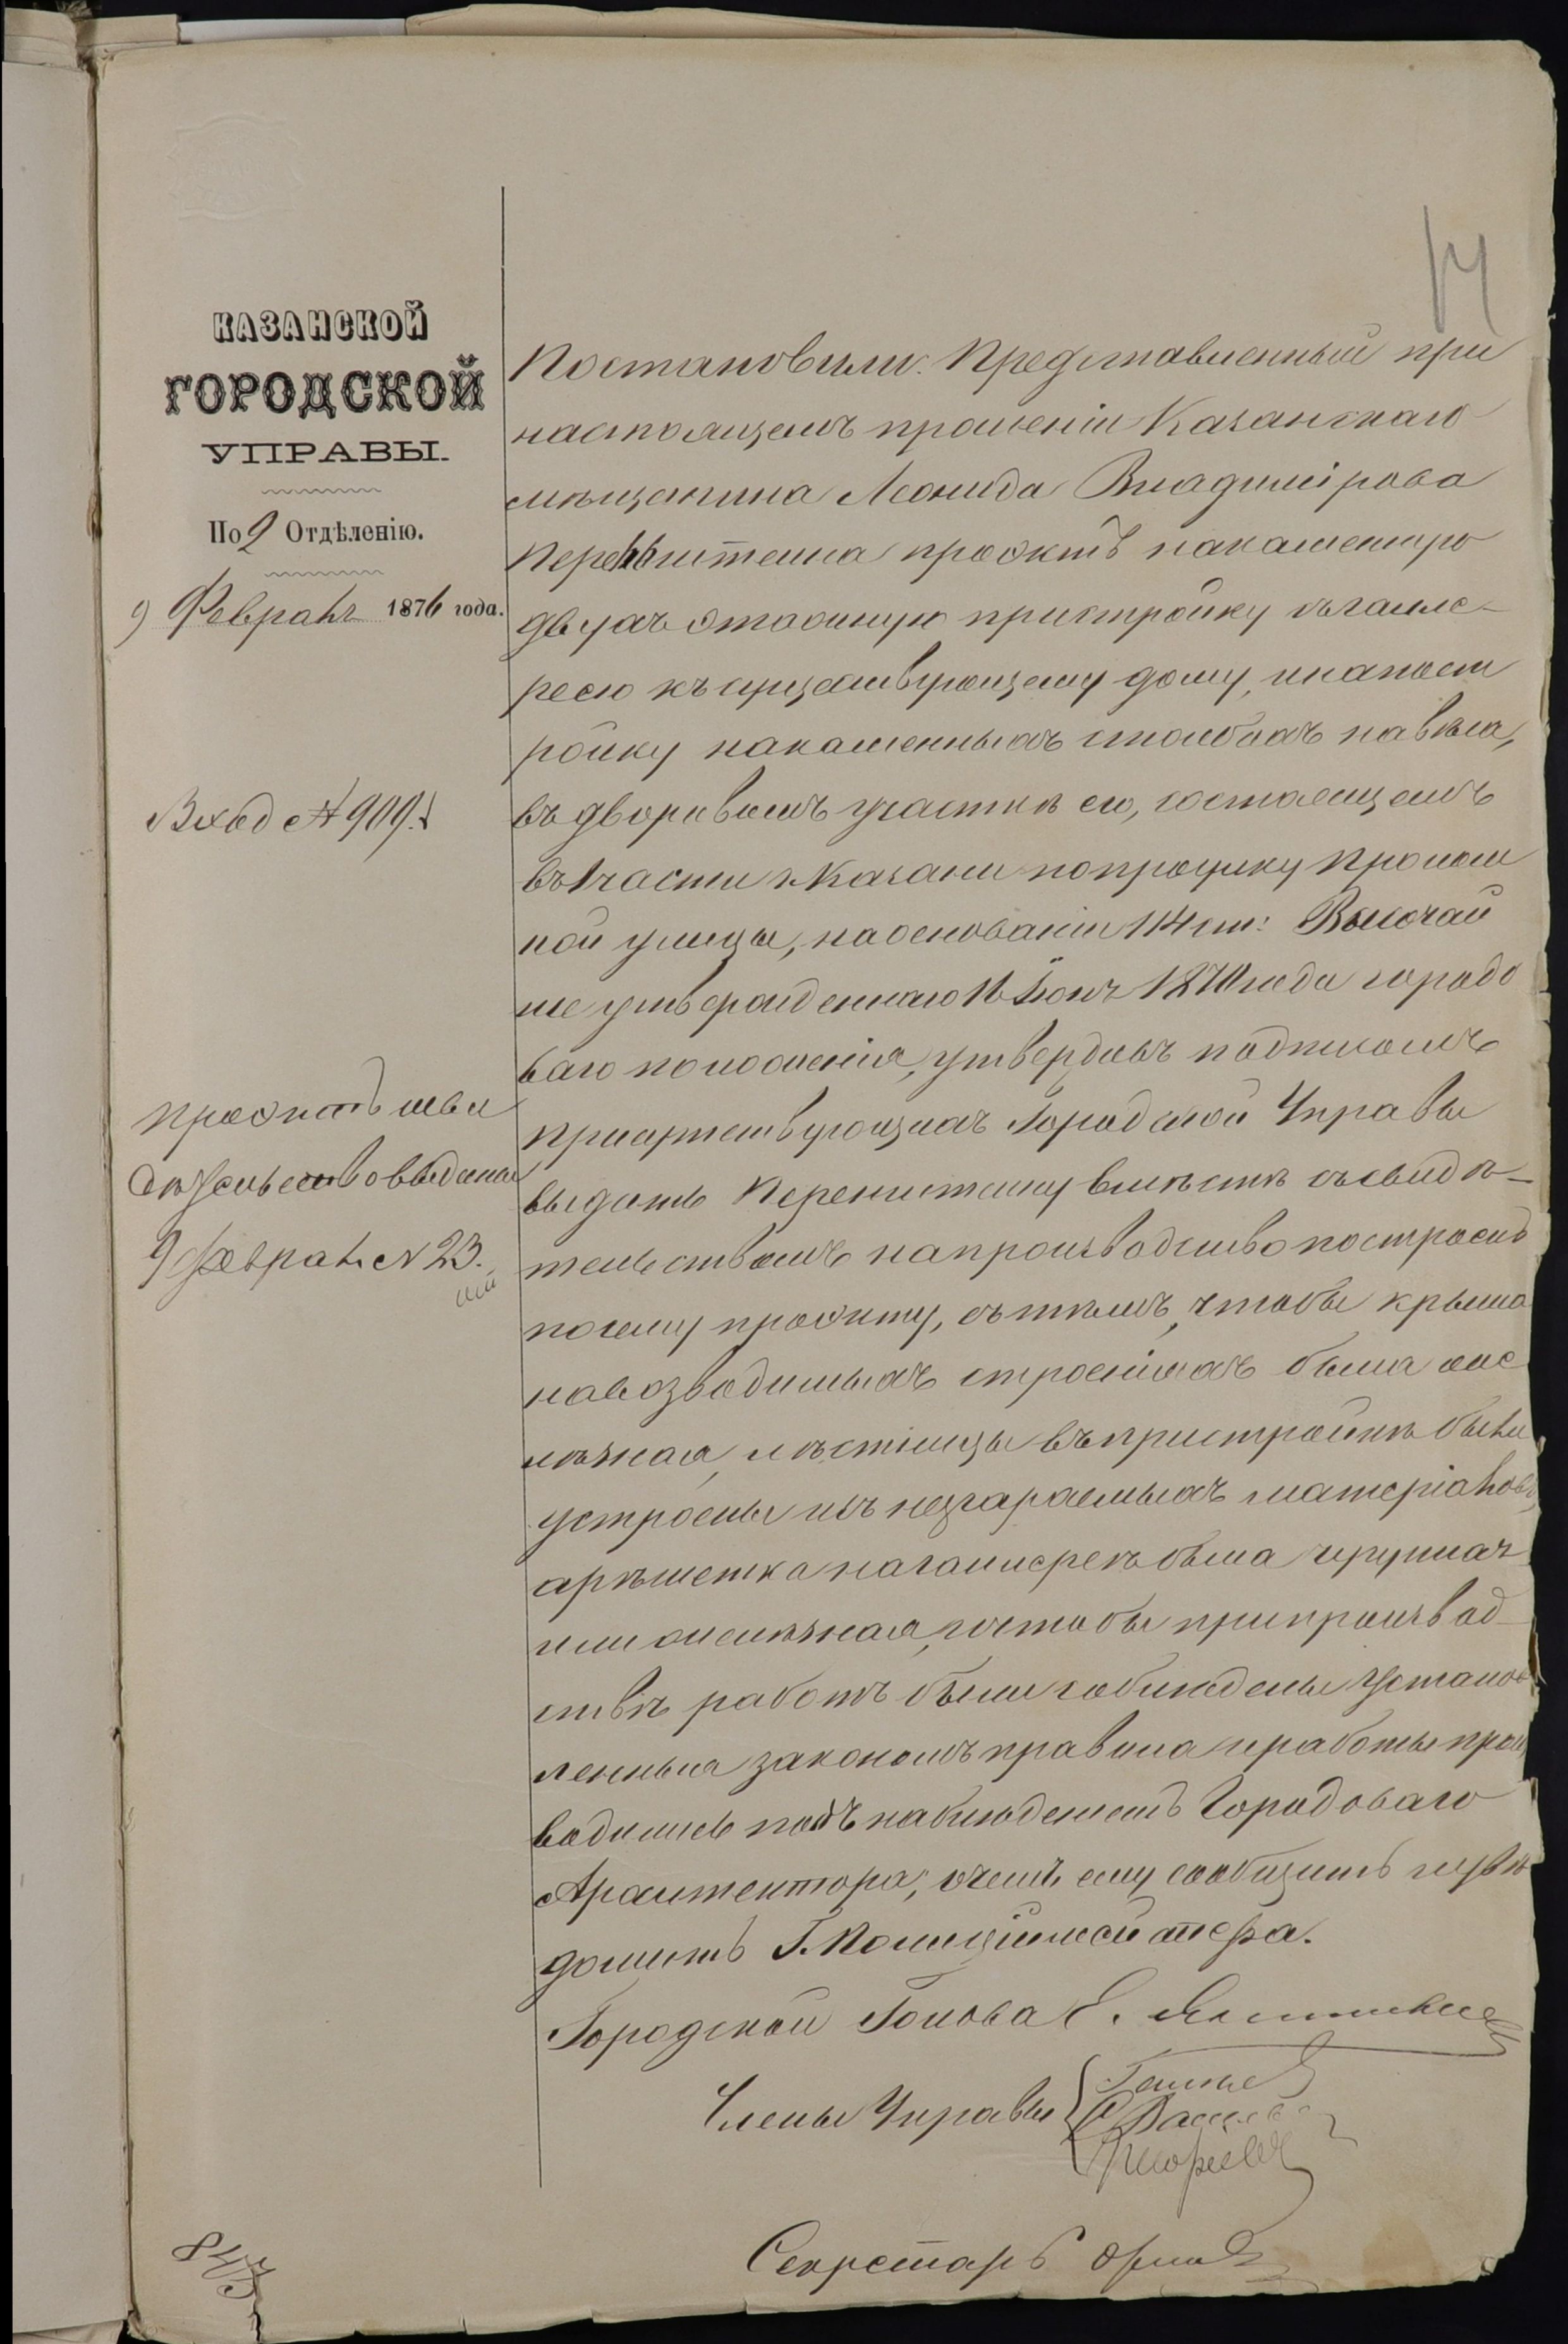 14
КАЗАНСКОЙ
ГОРОДСКОЙ
УПРАВЫ.
По 2 Отдѣленію.
9 Февраля 1876 года.
Вход № 909.
Проэктъ и сви
дѣтельство выданы
9 Февраля № 23.
Постановили: Представленный при
настоящемъ прошеніи Казанскаго
мѣщанина Леонида Владимірова
проэктъ на каменную
двухъ этажную пристройку съ галле-
реею къ существующему дому, и на пост
ройку на каменныхъ столбахъ навѣса,
въ дворовомъ участкѣ его, состоящемъ
въ 1 части г. Казани по проулку Пролом
ной улицы, на основаніи 114 ст: Высочай
ше утвержденнаго 16 Іюня 1870 года городо
ваго положенія, утвердивъ подписомъ
присутствующихъ Городской Управы
выдать Перенштейну вмѣстѣ съ свидѣ-
тельствомъ на производство построекъ
по сему проэкту, съ тѣмъ, чтобы крыша
на возводимыхъ строеніяхъ была же
лѣзная, лѣстницы въ пристройкѣ были
устроены изъ несгараемыхъ матеріаловъ,
а рѣшетка на галлереѣ была чугунная
или желѣзная, и чтобы при производ
ствѣ работъ были соблюдены установ
ленныя закономъ правила и работы произ
водились подъ наблюденіемъ Городоваго
Архитектора, о чемъ ему сообщить и увѣ
домить Г. Полиціймейстера.
Городской Голова Е.
Члены Управы
Секретарь
847